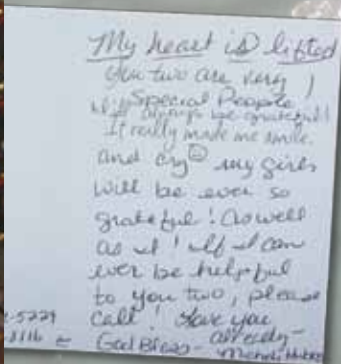 My heart is lifted
You two are very
Special People
always be grateful!
It really made me smile.
and cry ☺ my girls
will be ever so
grateful! As well
as I! If I can
ever be helpful
to you two, please
call! Love you
already-
God Bless-